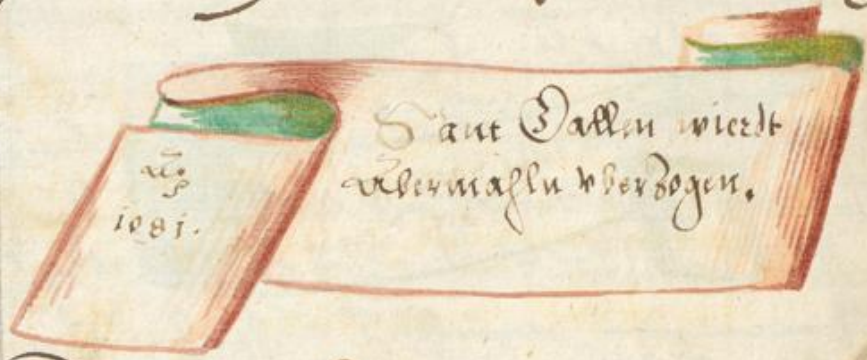 Aō
1081.
Sant Gallen wierdt
Abermahln vberzogen.